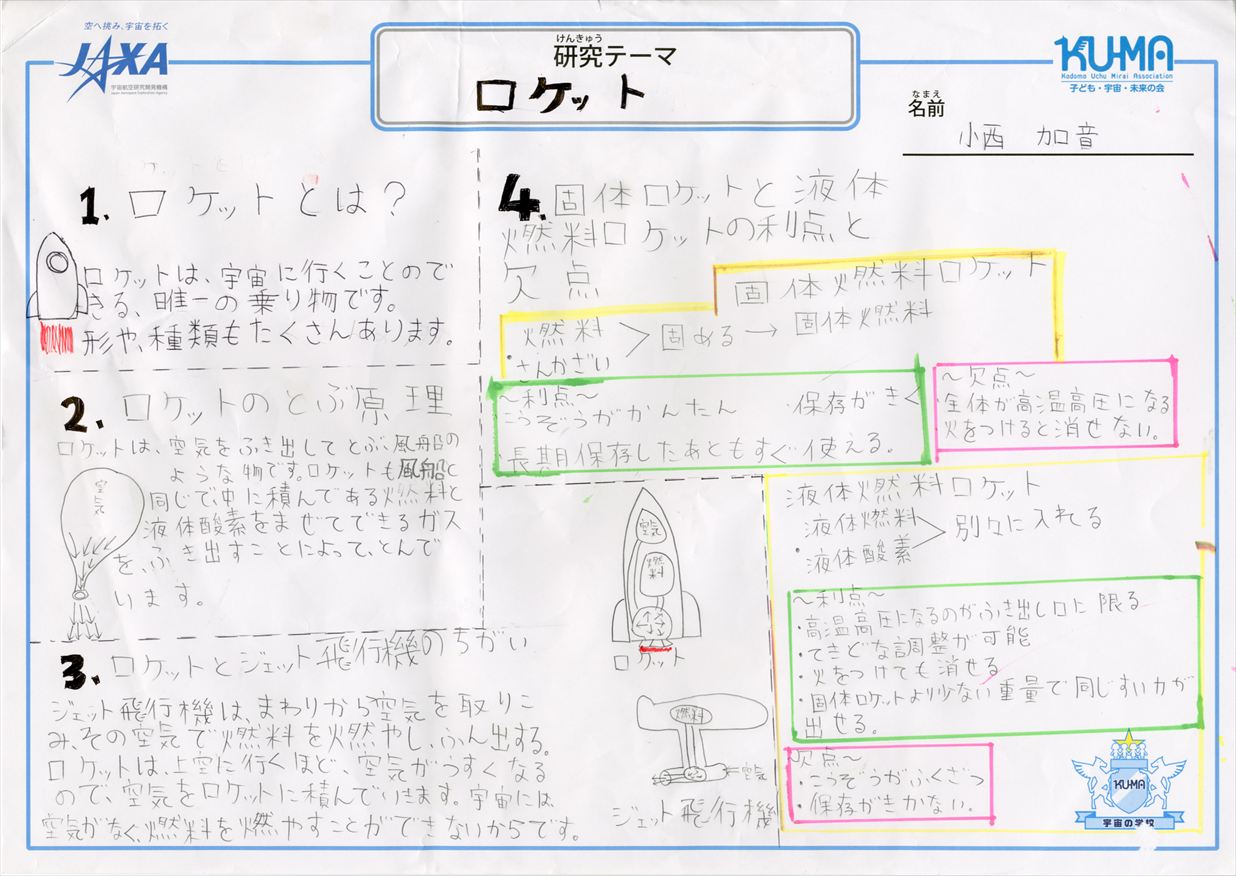 空へ挑み、宇宙を拓く
JAXA
宇宙航空研究開発機構
Japan Aerospace Exploration Agency
けんきゅう
研究テーマ
ロケット
KU-MA
Kodomo Uchu Mirai Association
子ども・宇宙・未来の会
なまえ
名前
小西 加音
1. ロケットとは?
ロケットは、宇宙に行くことので
きる、唯一の乗り物です。
形や、種類もたくさんあります。
2. ロケットのとぶ原理
ロケットは、空気をふき出してとぶ、風船の
ような物です。ロケットも風船と
同じで、中に積んである燃料と
液体酸素をまぜてできるガス
を、ふき出すことによって、とんで
います。
空気
3. ロケットとジェット飛行機のちがい
ジェット飛行機は、まわりから空気を取りこ
み、その空気で燃料を燃やし、ふん出する。
ロケットは、上空に行くほど、空気がうすくなる
ので、空気をロケットに積んでいきます。宇宙には、
空気がなく、燃料を燃やすことができないからです。
空気
燃料
ロケット
燃料
空気
ジェット飛行機
4. 固体ロケットと液体
燃料ロケットの利点と
欠点
固体燃料ロケット
燃料
・さんかざい
>固める→固体燃料
〜利点〜
・こうぞうがかんたん ・保存がきく
・長期保存したあともすぐ使える。
〜欠点〜
全体が高温高圧になる
火をつけると消せない。
液体燃料ロケット
液体燃料
・液体酸素
>別々に入れてる
〜利点〜
・高温高圧になるのがふき出し口に限る
・てきどな調整が可能
・火をつけても消せる
・固体ロケットより少ない重量で同じすい力が
出せる。
欠点〜
・こうぞうがふくざつ
・保存がきかない。
KU-MA
宇宙の学校